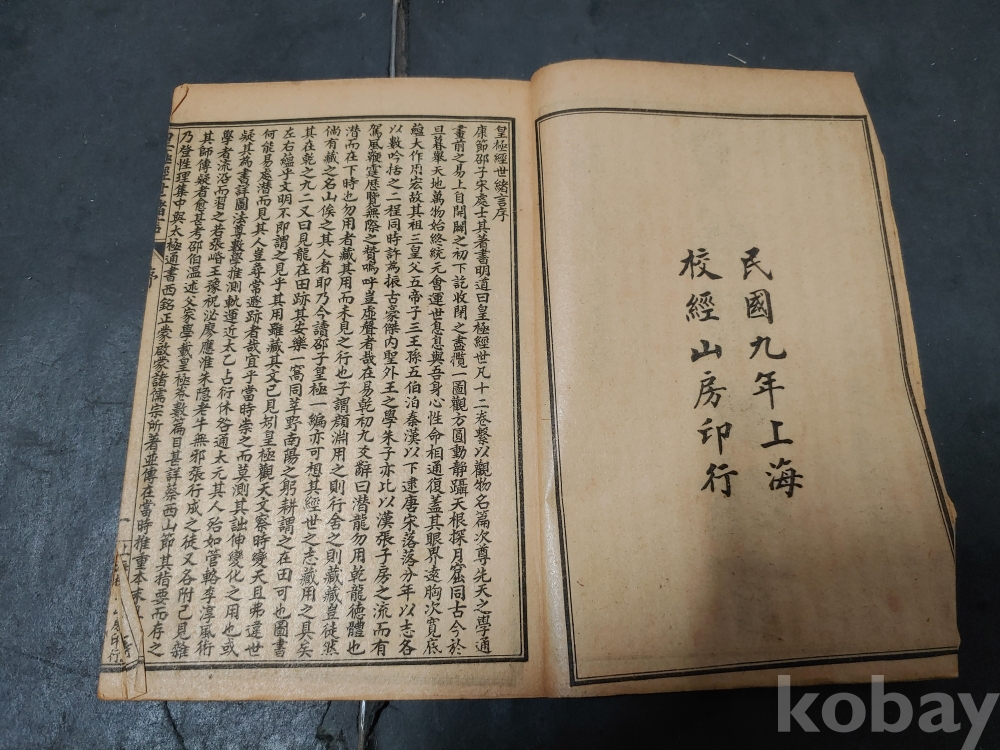 民國九年上海
校經山房印行
皇極經世緒言序
康節邵子宋處士其著書明道曰皇極經世凡十二卷繫以觀物名篇次尊先天之學通
畫前之易上自開闢之初下訖收閉之盡攬一圖觀方圓動靜躡天根探月窟同古今於
旦暮舉天地萬物始終統元會運世息息與吾身心性命相通復蓋其眼界遠胸次寬底
蘊大作用宏故其祖三皇父五帝子三王孫五伯洎秦漢以下逮唐宋落落分年以志各
以數吟括之二程同時許為振古豪傑內聖外王之學朱子亦比以漢張子房之流而有
駕風鞭霆歷覽無際之贊嗚呼豈虛聲者哉在易乾初九爻辭曰潛龍勿用乾龍德體也
潛而在下時也勿用者藏其用而未見之行也子謂顏淵用之則行舍之則藏藏豈徒然
倘有藏之名山俟之其人者耶乃今讀邵子皇極一編亦可想其經世之志藏用之具矣
其在乾之九二又曰見龍在田跡其安樂一窩同莘野南陽之躬耕謂之在田可也圖書
左右蘊乎文明不即謂之見乎其用雖藏其文已見矧皇極觀天文察時變天且弗違世
何能易處潛而見其人豈尋常遯跡者哉宜乎當時崇之而莫測其詘伸變化之用也或
疑其為書詳圖法尊數學推測軌運近太乙占行休咎通太元其人殆如管輅李淳風術
學者流沿而習之若張㟭王豫祝泌廖應淮朱隱老牛無邪張行成之徒又各附己見雜
其師傳疑者愈甚考邵伯溫述父家學載皇極卷數篇目甚詳蔡西山節其指要而存之
乃登性理集中與太極通書西銘正蒙啟蒙諸儒宗所著並傳在當時推重本末
序
一